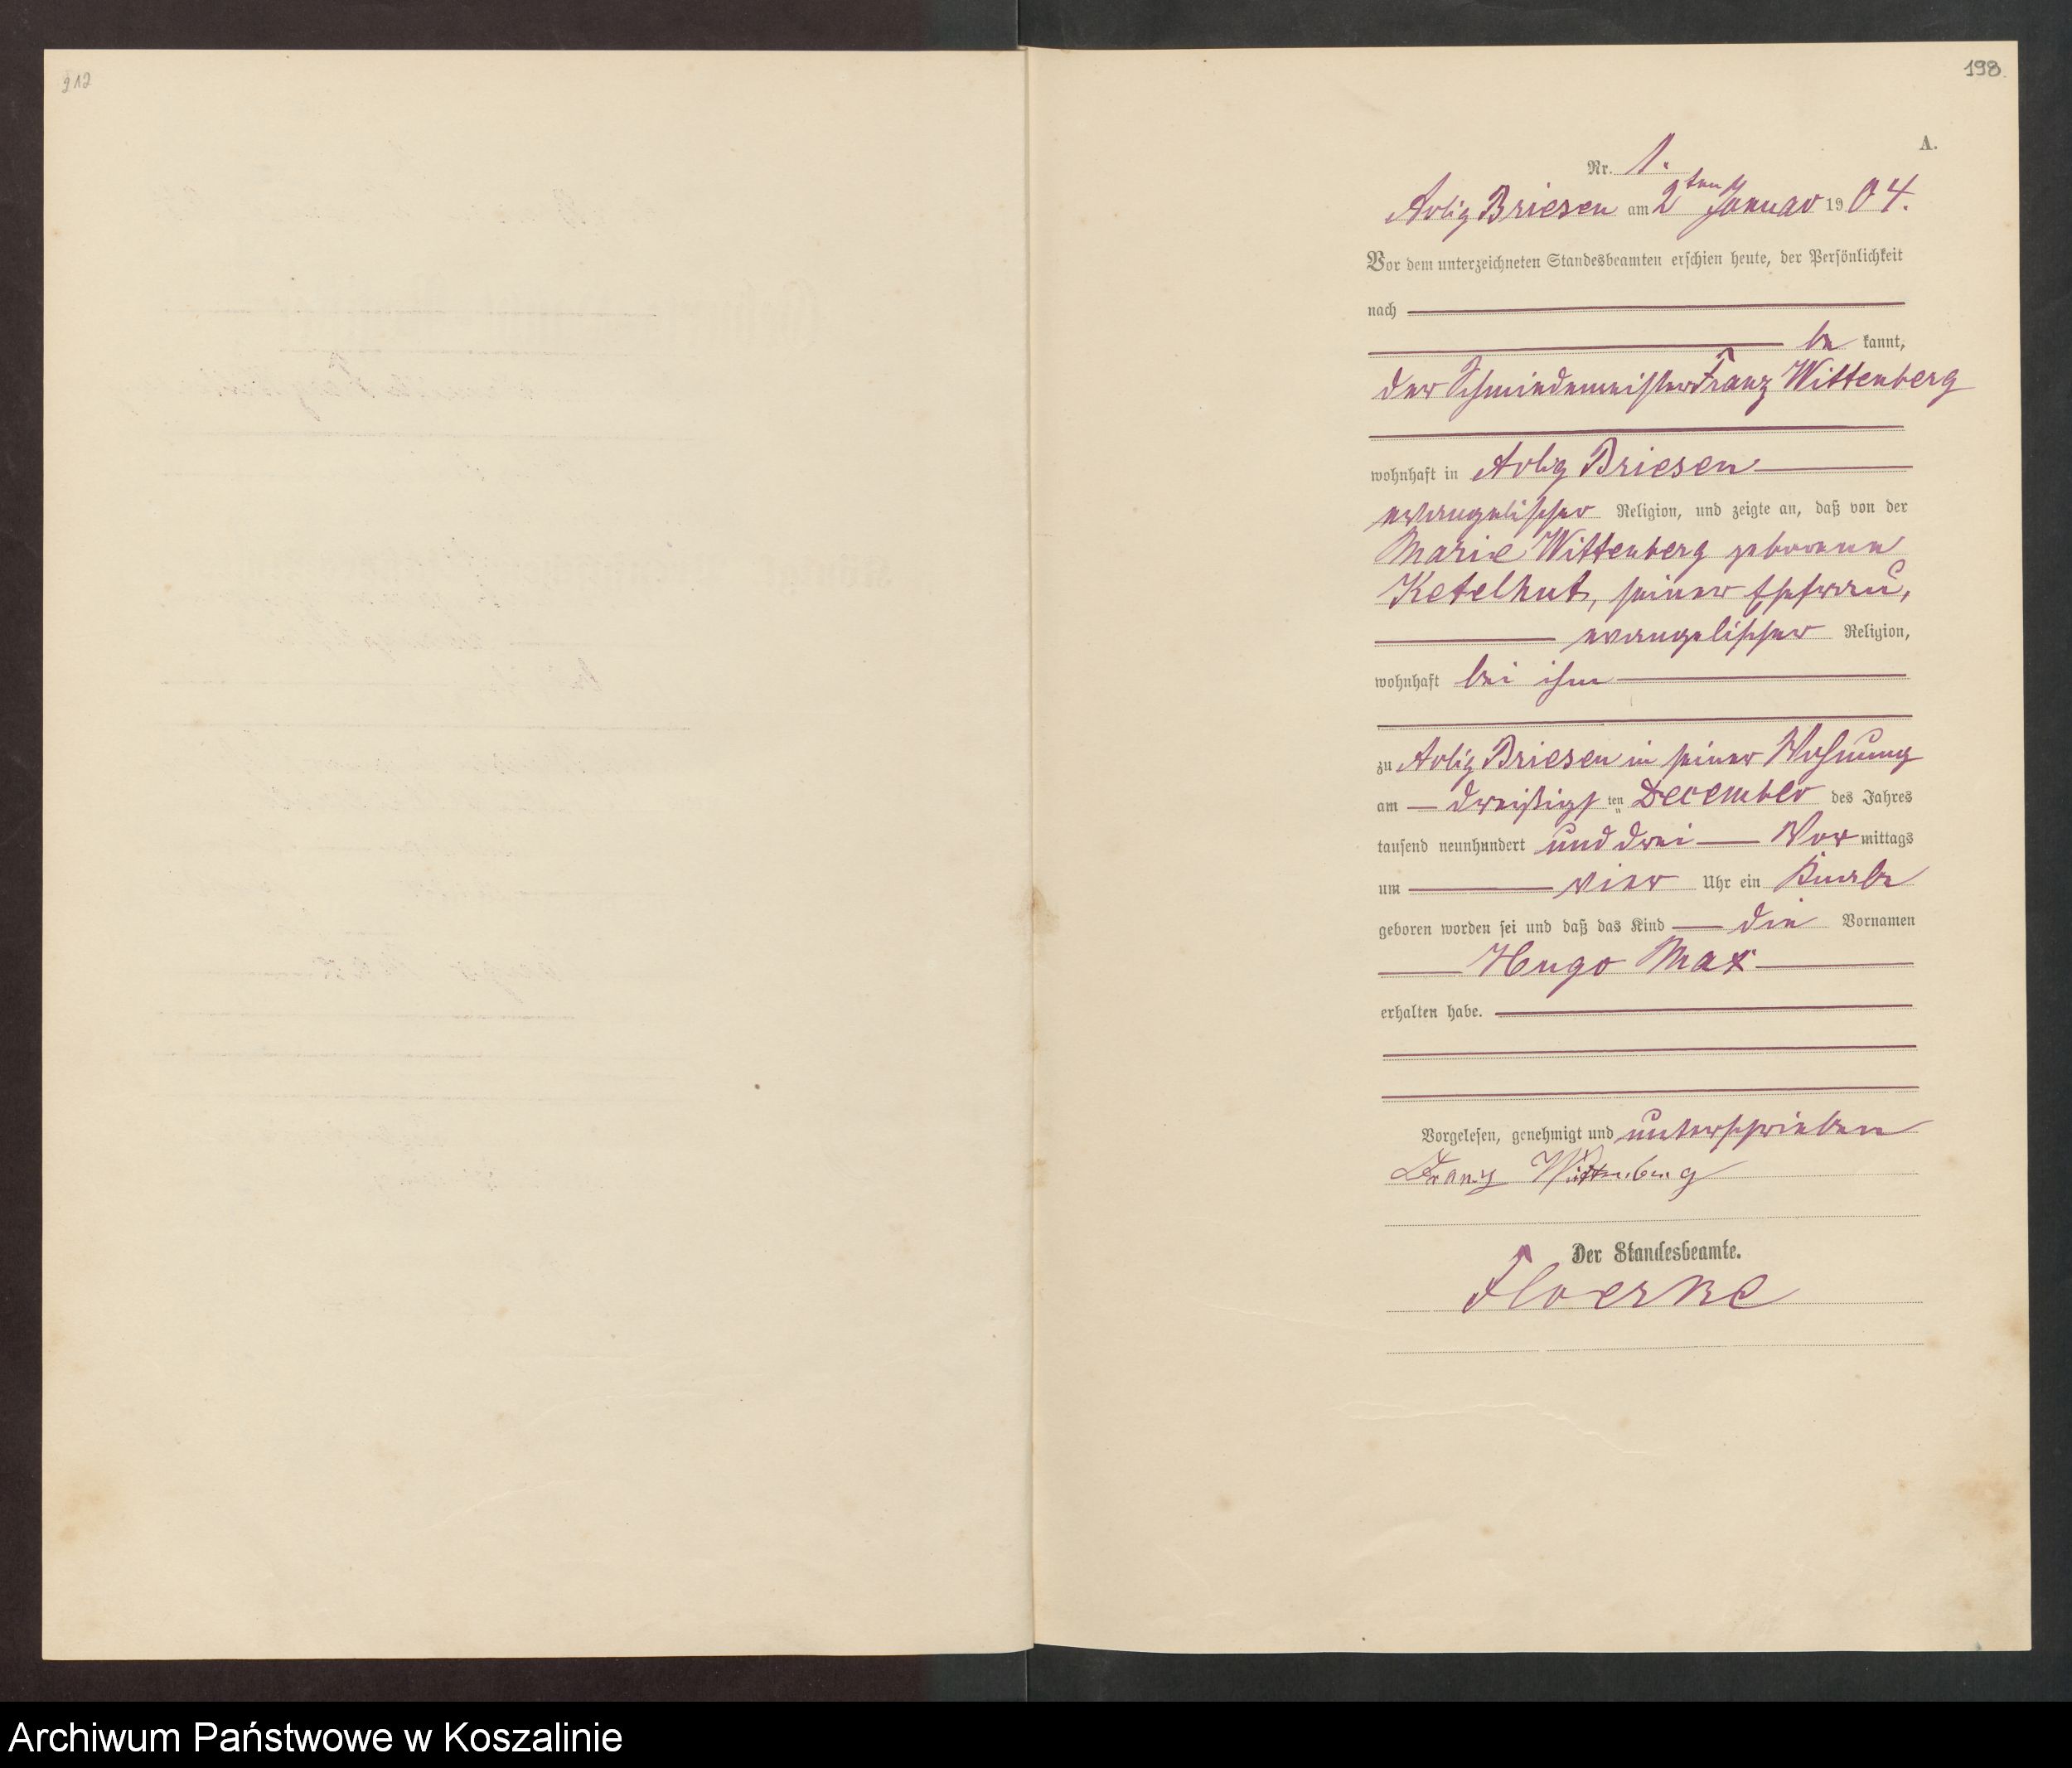 212
198
A.
Nr. 1.
Adlig Briesen am 2ten Januar 1904.
Vor dem unterzeichneten Standesbeamten erschien heute, der Persönlichkeit
nach
be kannt,
der Schmiedemeister Franz Wittenberg
wohnhaft in Adlig Briesen
evangelischer Religion, und zeigte an, daß von der
Marie Wittenberg geborene
Ketelhut, seiner Ehefrau,
evangelischer Religion,
wohnhaft bei ihm
zu Adlig Briesen in seiner Wohnung
am dreißigsten December des Jahres
tausend neunhundert und drei Vor mittags
um vier Uhr ein Knabe
geboren worden sei und daß das Kind die Vornamen
Hugo Max
erhalten habe.
Vorgelesen, genehmigt und unterschrieben
Franz Wittenberg
Der Standesbeamte.
Floerke
Archiwum Państwowe w Koszalinie